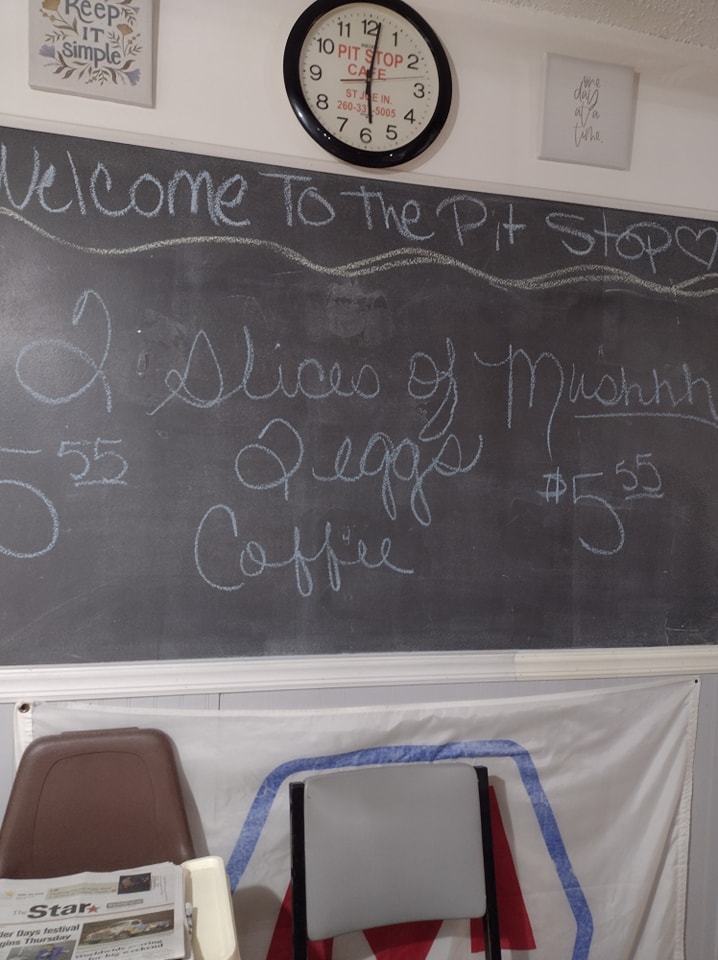 KEEP
IT
simple
11 12 1
10 2
9 3
8 4
7 6 5
PIT STOP
CAFE
ST JOE IN.
one
day
at a
time.
Welcome To The Pit Stop♡
2 Slices of Mushhh
5 55 2 eggs $5 55
Coffee
The Star
Days festival
Thursday